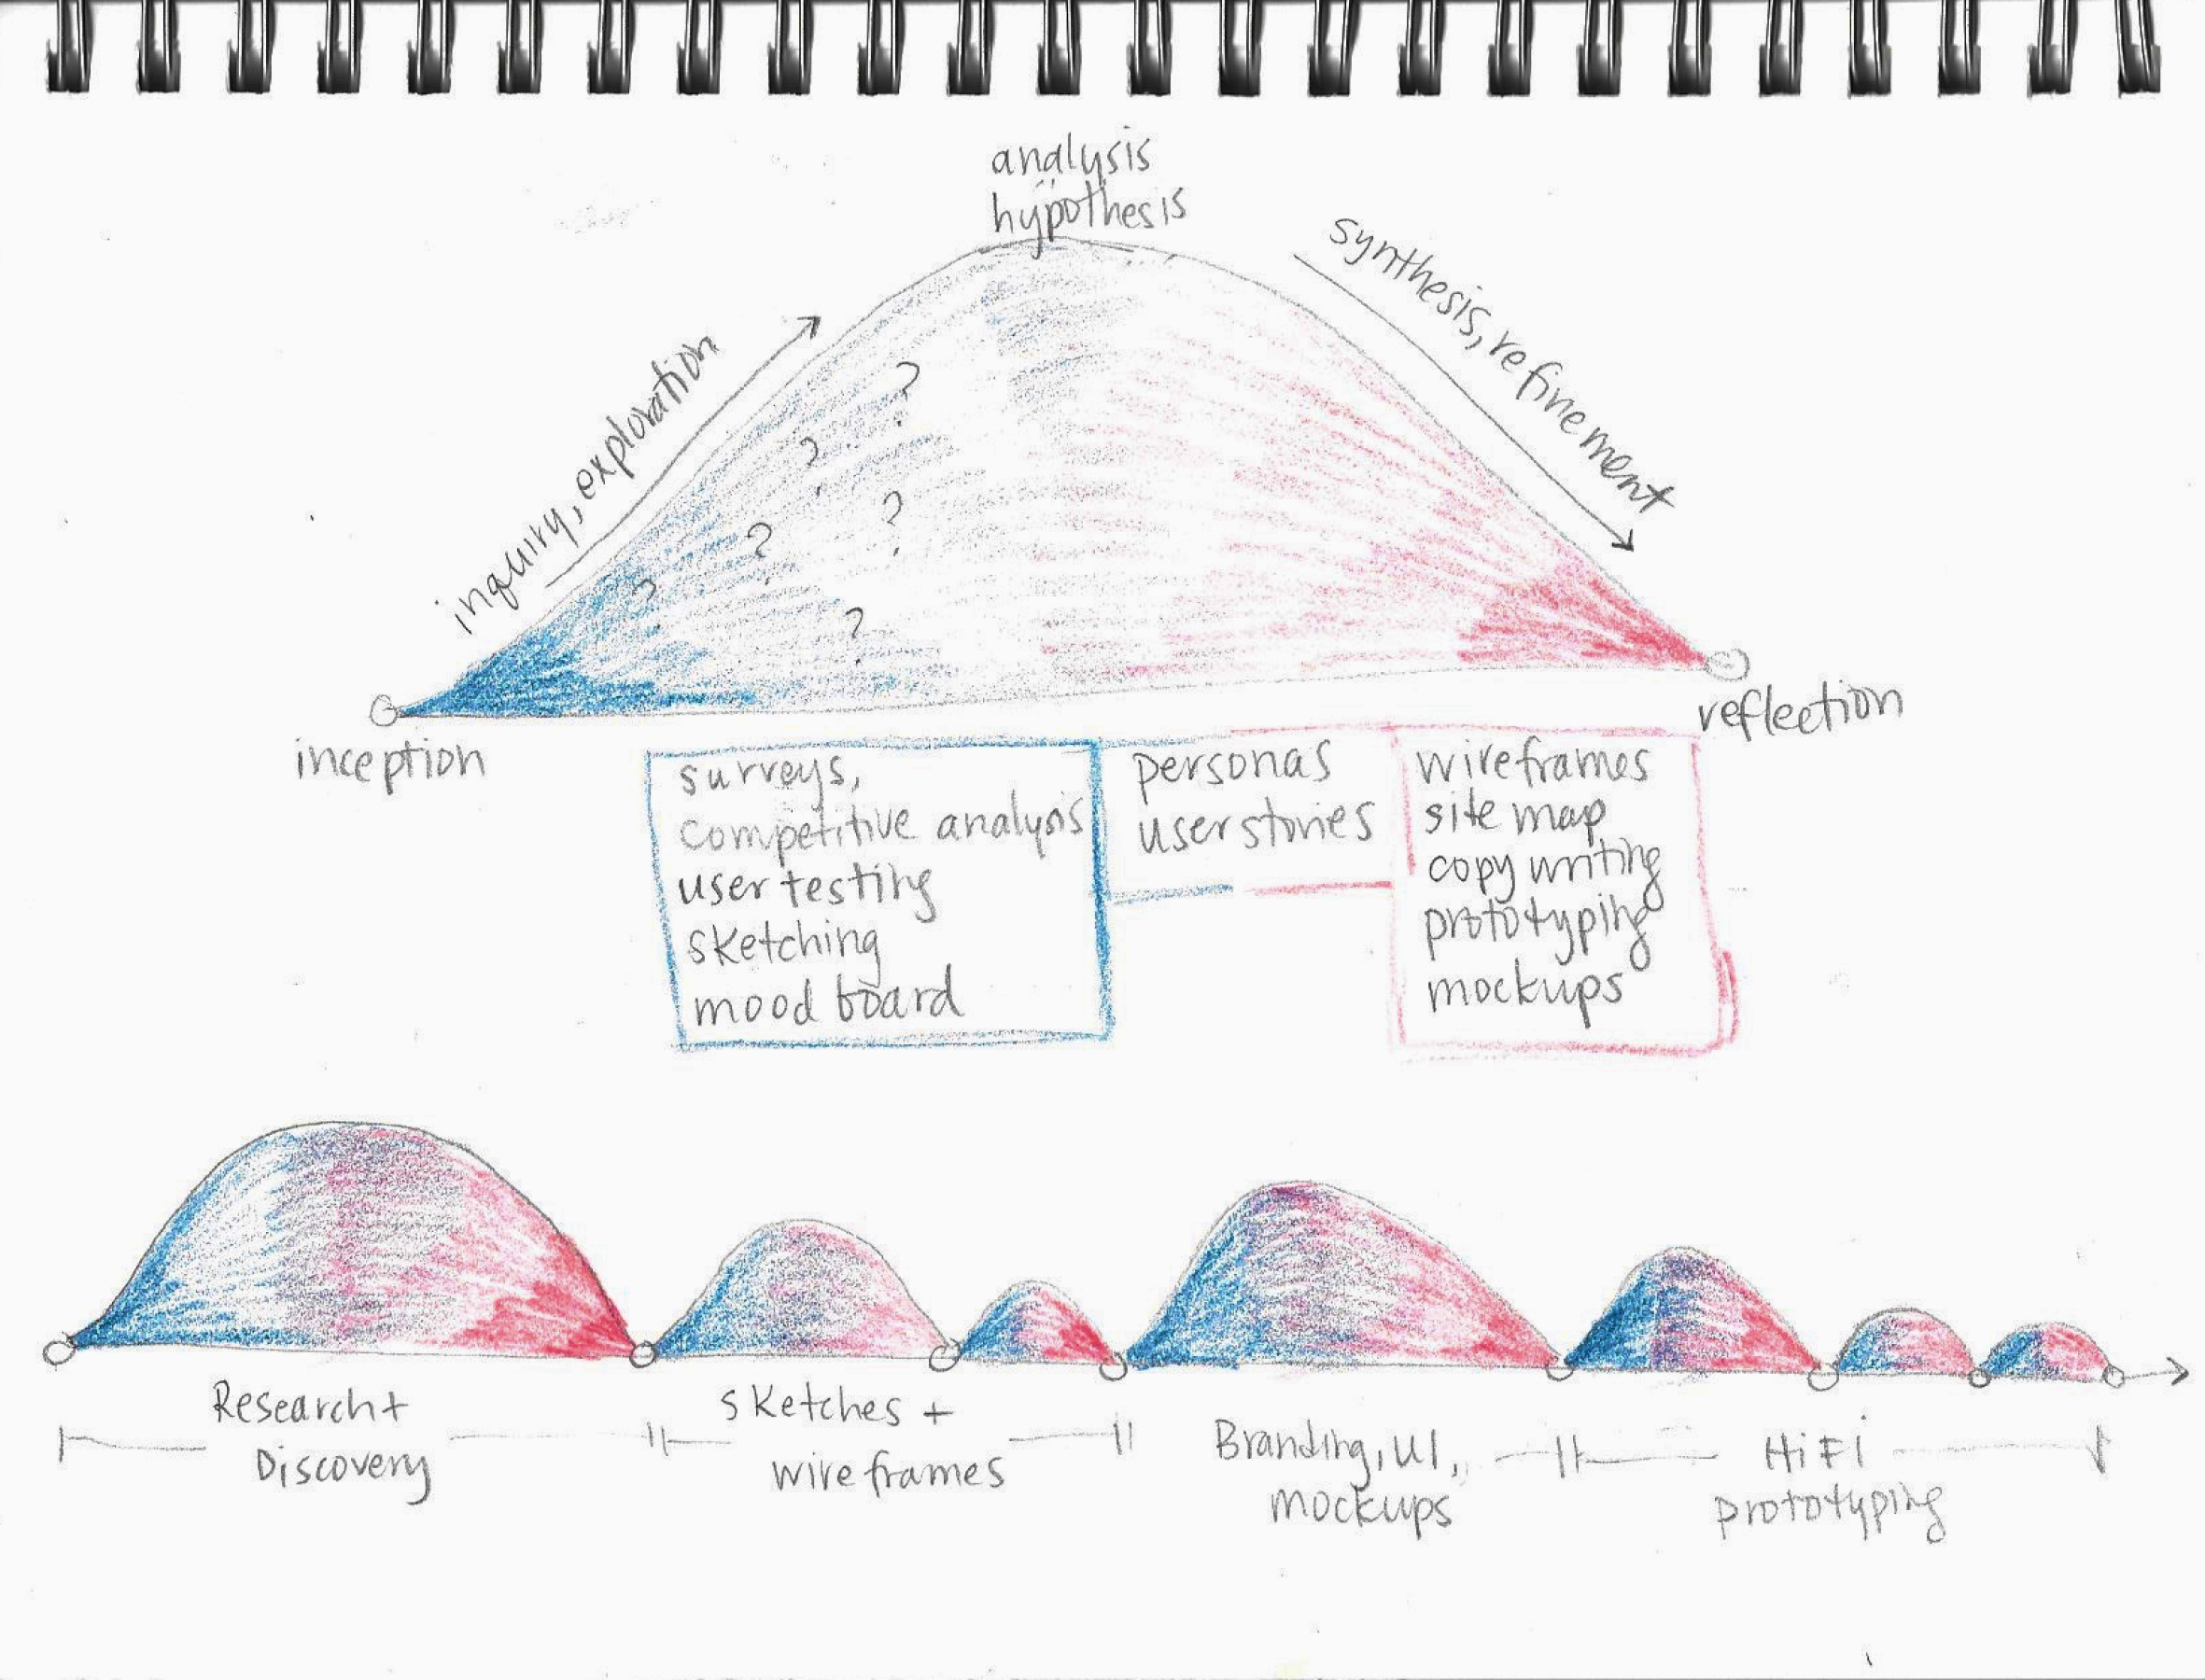 analysis
hypothesis
inquiry, exploration
synthesis, refinement
?
?
?
?
?
?
inception
reflection
surveys,
competitive analysis
user testing
sketching
mood board
personas
user stories
wireframes
site map
copy writing
prototyping
mockups
Research +
Discovery
sketches +
wireframes
Branding, UI,
mockups
HiFi
prototyping